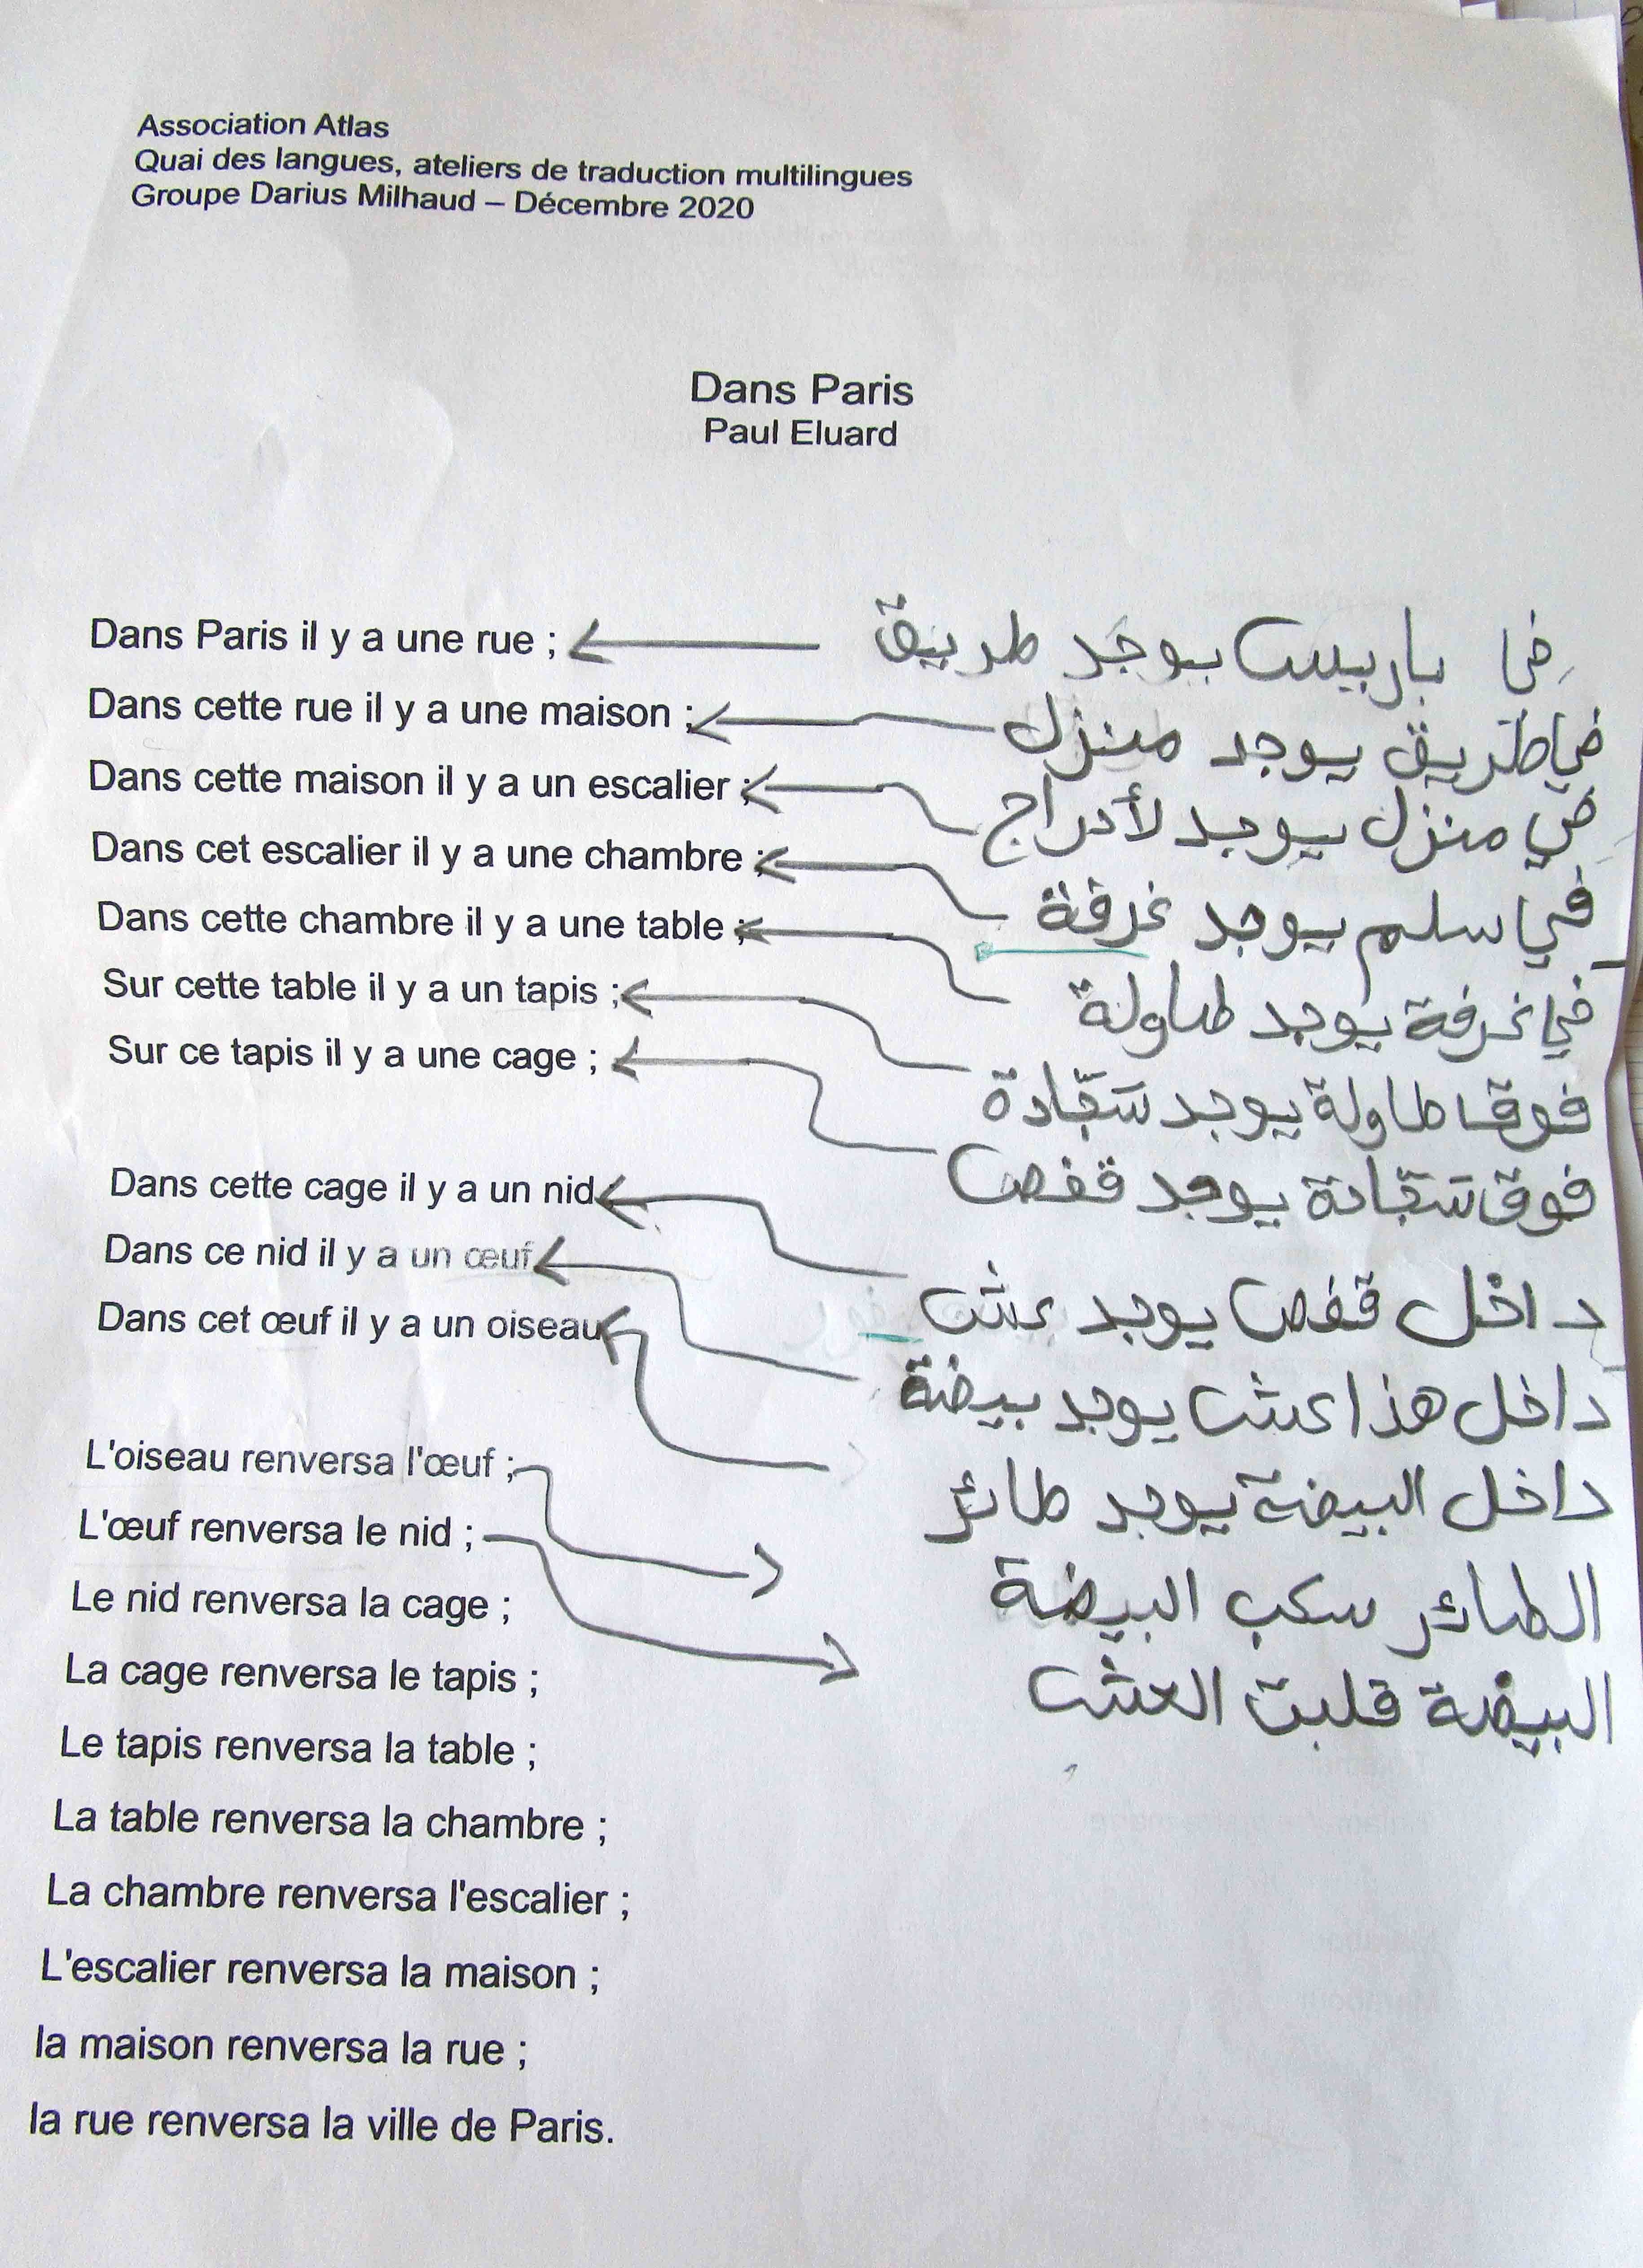 Association Atlas
Quai des langues, ateliers de traduction multilingues
Groupe Darius Milhaud – Décembre 2020
Dans Paris
Paul Eluard
Dans Paris il y a une rue ;
في باريس يوجد طريق
Dans cette rue il y a une maison ;
في طريق يوجد منزل
Dans cette maison il y a un escalier ;
في منزل يوجد لأدراج
Dans cet escalier il y a une chambre ;
في سلم يوجد غرفة
Dans cette chambre il y a une table ;
في غرفة يوجد طاولة
Sur cette table il y a un tapis ;
فوق طاولة يوجد سجّادة
Sur ce tapis il y a une cage ;
فوق سجّادة يوجد قفص
Dans cette cage il y a un nid
داخل قفص يوجد عش
Dans ce nid il y a un œuf
داخل هذا عش يوجد بيضة
Dans cet œuf il y a un oiseau
داخل البيضة يوجد طائر
L'oiseau renversa l'œuf ;
الطائر سكب البيضة
L'œuf renversa le nid ;
البيضة قلبت العش
Le nid renversa la cage ;
La cage renversa le tapis ;
Le tapis renversa la table ;
La table renversa la chambre ;
La chambre renversa l'escalier ;
L'escalier renversa la maison ;
la maison renversa la rue ;
la rue renversa la ville de Paris.